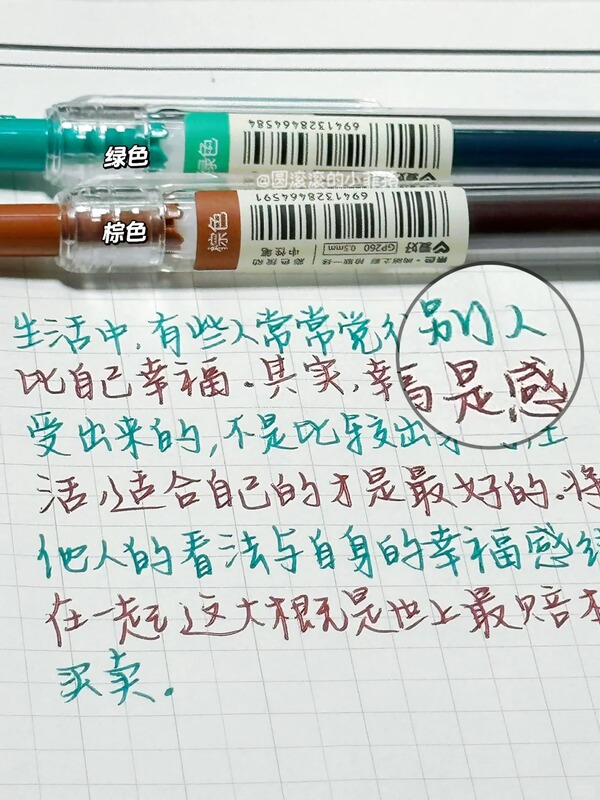 6941328464584
绿色
绿色
@圆滚滚的小
6941328464591
棕色
棕色
爱好
GP260 0.5mm
中性笔
生活中,有些人常常觉 别人
比自己幸福.其实,幸 是感
受出来的,不是比较出
活,适合自己的才是最好的.将
他人的看法与自身的幸福感
在一起这大概是世上最赔本
买卖.